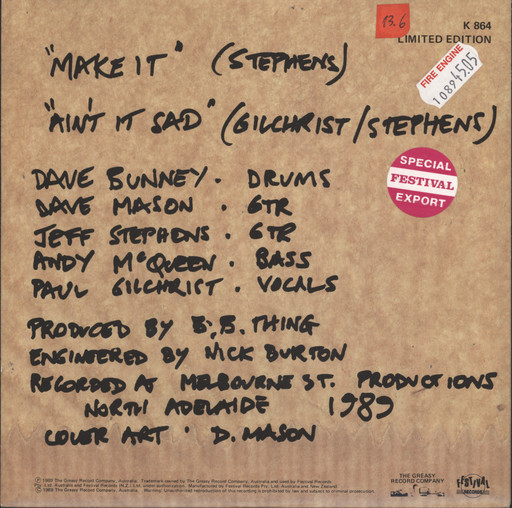 13.6
K 864
LIMITED EDITION
FIRE ENGINE
108945.05
"MAKE IT" (STEPHENS)
"AIN'T IT SAD" (GILCHRIST/STEPHENS)
SPECIAL
FESTIVAL
EXPORT
DAVE BUNNEY. DRUMS
DAVE MASON. GTR
JEFF STEPHENS. GTR
ANDY McQUEEN. BASS
PAUL GILCHRIST. VOCALS
PRODUCED BY B.B. THING
ENGINEERED BY NICK BURTON
RECORDED AT MELBOURNE ST. PRODUCTIONS
NORTH ADELAIDE 1989
COVER ART. D. MASON
℗ 1989 The Greasy Record Company, Australia. Trademark owned by The Greasy Record Company, Australia and used by Festival Records
Pty. Ltd. Australia and Festival Records (N.Z.) Ltd. under authorization. Manufactured by Festival Records Pty. Ltd. Australia and New Zealand
© 1989 The Greasy Record Company, Australia. Warning: Unauthorised reproductions of this recording is prohibited by law and subject to criminal prosecution.
THE GREASY
RECORD COMPANY
FESTIVAL
RECORDS